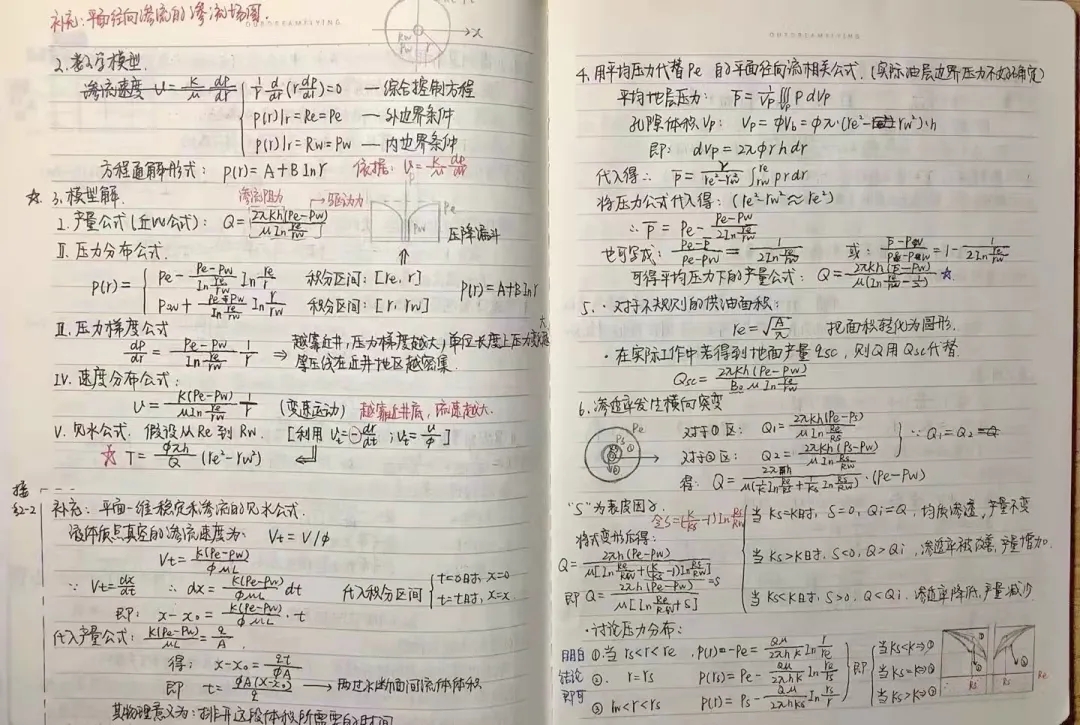 补充:平面径向渗流的渗流场图.
2.数学模型
渗流速度 v = K/μ dp/dr
1/r d/dr (r dp/dr)=0 — 综合控制方程
P(r)|r=Re=Pe — 外边界条件
P(r)|r=Rw=Pw — 内边界条件
方程通解形式: P(r)=A+B ln r 依据: v = K/μ dp/dr
☆ 3.模型解
渗流阻力 → 驱动力
I.产量公式(丘比公式): Q = 2πkh(Pe-Pw) / μ ln re/rw
Pe
Pw
压降漏斗
II.压力分布公式.
P(r) = { Pe - (Pe-Pw)/(ln re/rw) ln re/r 积分区间: [re, r]
Pw + (Pe-Pw)/(ln re/rw) ln r/rw 积分区间: [r, rw]
P(r)=A+B ln r
III.压力梯度公式
dp/dr = (Pe-Pw)/(ln re/rw) 1/r ⇒ 越靠近井,压力梯度越大,单位长度上压力变化越大
等压线在近井地区越密集.
IV.速度分布公式:
v = K(Pe-Pw)/(μ ln re/rw) 1/r (变速运动) 越靠近井底,流速越大.
V.见水公式. 假设从Re到Rw. [利用 Vt=⊖dr/dt ; Vt=v/φ]
☆ T = φπh/Q (re²-rw²)
接
补充:平面一维稳定和渗流的见水公式.
流体质点真空的渗流速度为: Vt = V/φ
Vt = K(Pe-Pw)/φμL
∵ Vt=dx/dt ∴ dx = K(Pe-Pw)/φμL dt 代入积分区间 { t=0时, x=0
t=t时, x=x
即: x-x₀ = K(Pe-Pw)/φμL · t
代入产量公式: K(Pe-Pw)/μL = q/A
得: x-x₀ = qt/φA
即 t = φA(x-x₀)/q → 两过水断面间流体体积
其物理意义为: 排开这段体积所需要的时间
4.用平均压力代替Pe的平面径向流相关公式.(实际油层边界压力不好确定)
平均地层压力: P̄ = 1/Vp ∭ P dVp
孔隙体积Vp: Vp = φVb = φπ·(re²-rw²)·h
即: dVp = 2πφrh dr
代入得: P̄ = 2/(re²-rw²) ∫ Pr dr
将压力公式代入得: (re²-rw²≈re²)
∴ P̄ = Pe - (Pe-Pw)/(2ln re/rw)
也可写成: (Pe-P̄)/(Pe-Pw) = 1/(2ln re/rw) 或: (P̄-Pw)/(Pe-Pw) = 1 - 1/(2ln re/rw)
可得平均压力下的产量公式: Q = 2πkh(P̄-Pw)/μ(ln re/rw - 1/2) ☆
5.·对于不规则的供油面积:
re = √(A/π) 把面积转化为圆形.
·在实际工作中若得到地面产量qsc, 则Q用Qsc代替.
Qsc = 2πkh(Pe-Pw)/(Bo μ ln re/rw)
6.渗透率发生横向突变
Pe
Ps
对于①区: Q₁ = 2πkh(Pe-Ps)/(μ ln Re/Rs)
对于②区: Q₂ = 2πkh(Ps-Pw)/(μ ln Rs/Rw)
∵ Q₁=Q₂=Q
得: Q = 2πh/μ(1/K ln Re/Rs + 1/Ks ln Rs/Rw) ·(Pe-Pw)
"S"为表皮因子
令S=(K/Ks-1)ln Rs/Rw
将式变形后得:
Q = 2πkh(Pe-Pw)/μ[ln Re/Rw+(K/Ks-1)ln Rs/Rw] =S
即 Q = 2πkh(Pe-Pw)/μ[ln Re/Rw+S]
当Ks=K时, S=0, Qi=Q, 均质渗透,产量不变
当Ks>K时, S<0, Q>Qi, 渗透率被改善,产量增加
当Ks<K时, S>0, Q<Qi, 渗透率降低,产量减少
·讨论压力分布:
明白
结论
即可
①.当 rs<r<re , P(r) - Pe = Qμ/2πhK ln r/re
②. r=rs P(rs) = Pe - Qμ/2πhK ln re/rs
③ rw<r<rs P(r) = Ps - Qμ/2πhKs ln rs/r
即 { 当Ks<K⇒①
当Ks=K⇒②
当Ks>K⇒③
Rs Rs Re